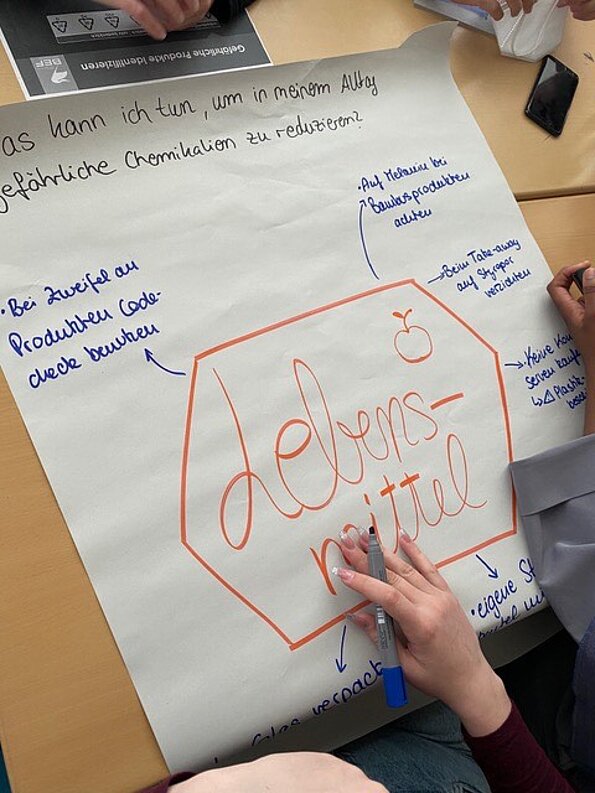 Gefährliche Produkte Identifizieren
BEF
as kann ich tun, um in meinem Alltag
gefährliche Chemikalien zu reduzieren?
• Auf Melamin bei
Bambusprodukten
achten
Beim Take-away
auf Styropor
verzichten
• Bei Zweifel an
Produkten Code-
check benutzen
• Keine Kon
serven kaufe
Plastik-
Lebens-
mittel
• eigene St
verpack